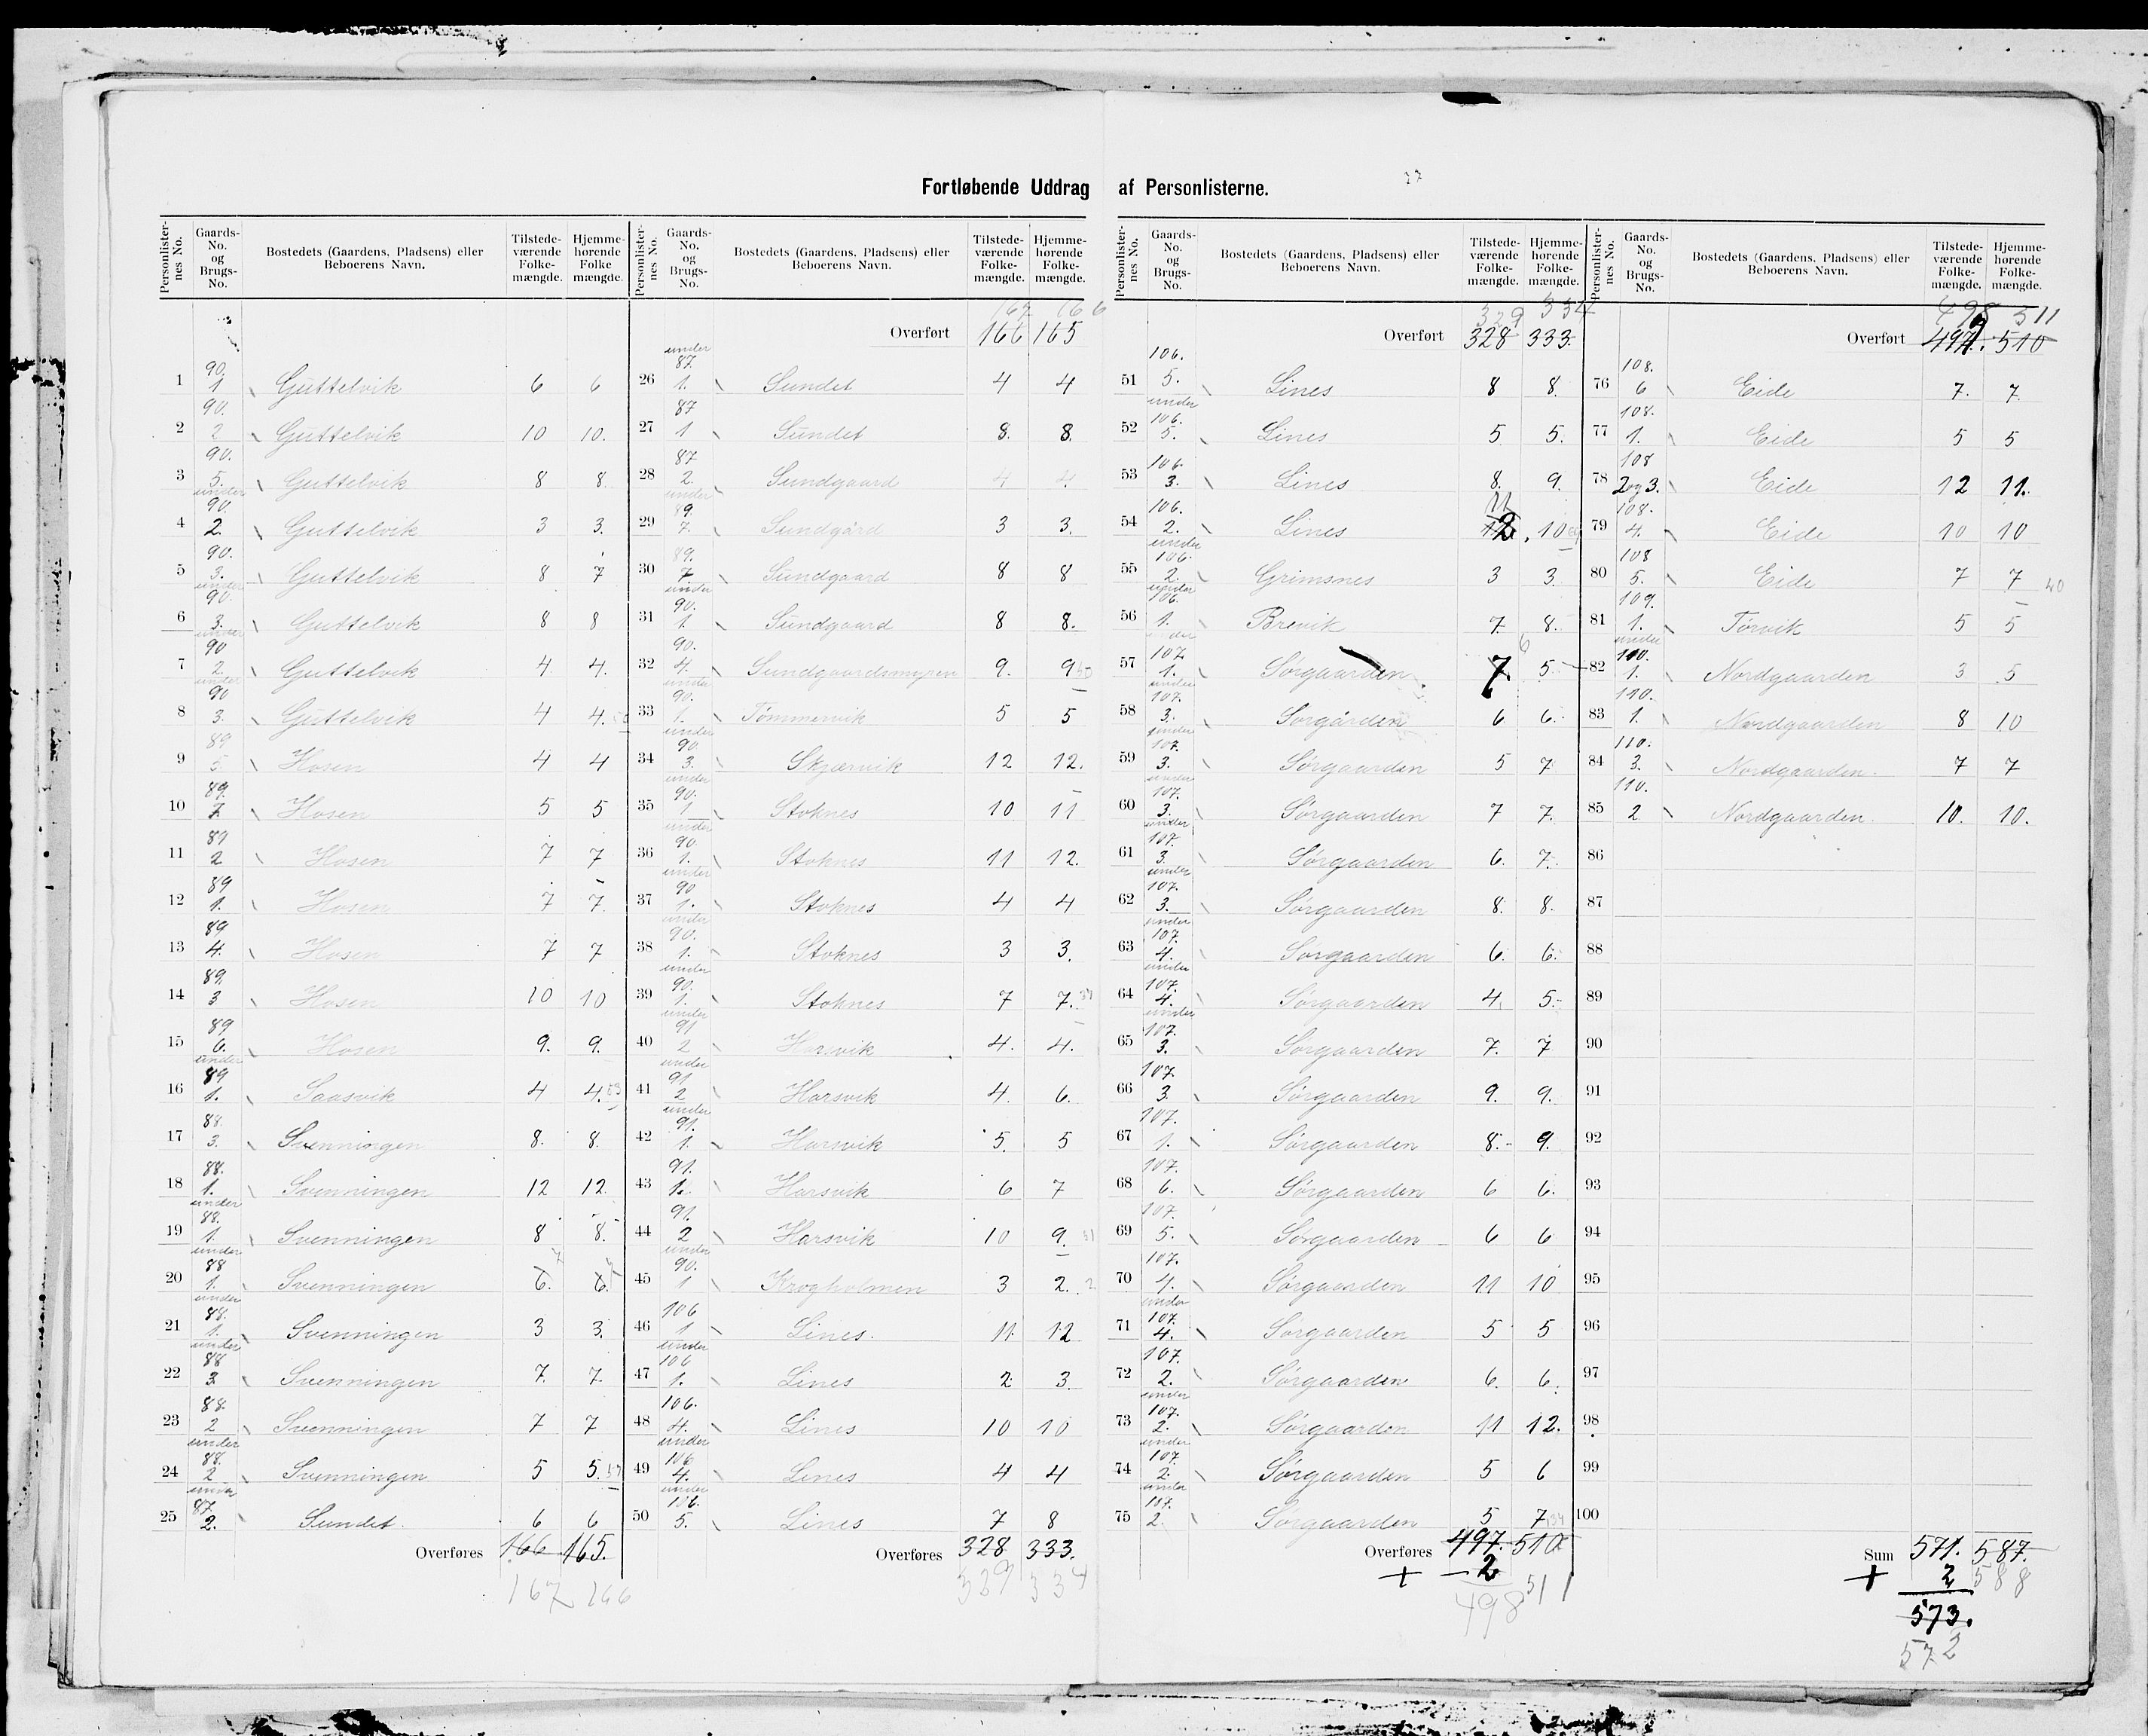 Fortløbende Uddrag af Personlisterne.
27
Personlister-nes No. | Gaards-No. og Brugs-No. | Bostedets (Gaardens, Pladsens) eller Beboerens Navn. | Tilstede-værende Folke-mængde. | Hjemme-hørende Folke mængde.
1 | 90. 1 | Guttelvik | 6 | 6
2 | 90. 2 | Guttelvik | 10 | 10.
3 | 90. 5. | Guttelvik | 8 | 8
4 | under 90. 2. | Guttelvik | 3 | 3.
5 | 90. 3. | Guttelvik | 8 | 7
6 | under 90. 3. | Guttelvik | 8 | 8
7 | under 90 2. | Guttelvik | 4 | 4.
8 | under 90 3. | Guttelvik | 4 | 4.
9 | 89 5 | Hosen | 4 | 4
10 | 89. 7 | Hosen | 5 | 5
11 | 89 2 | Hosen | 7 | 7
12 | 89 1. | Hosen | 7 | 7
13 | 89 4. | Hosen | 7 | 7
14 | 89. 3 | Hosen | 10 | 10
15 | 89 6. | Hosen | 9. | 9.
16 | under 89 1. | Saasvik | 4 | 4.
17 | 88. 3. | Svenningen | 8. | 8.
18 | 88. 1. | Svenningen | 12 | 12
19 | under 88. 1. | Svenningen | 8 | 8.
20 | under 88 1. | Svenningen | 6. 7 | 6. 7
21 | under 88. 1. | Svenningen | 3 | 3.
22 | under 88 3. | Svenningen | 7. | 7.
23 | 88. 2 | Svenningen | 7 | 7
24 | under 88. 2 | Svenningen | 5 | 5.
25 | under 87. 2. | Sundet. | 6 | 6
Overføres 166 165.
167 166
Personlister-nes No. | Gaards-No. og Brugs-No. | Bostedets (Gaardens, Pladsens) eller Beboerens Navn. | Tilstede-værende Folke-mængde. | Hjemme-hørende Folke-mængde.
167 166
Overført 166 165
26 | under 87. 1. | Sundet | 4 | 4
27 | 87 1 | Sundet | 8. | 8.
28 | 87 2. | Sundgaard | 4 | 4
29 | under 89. 7. | Sundgård | 3 | 3.
30 | 89. 7 | Sundgaard | 8 | 8
31 | under 90. 1. | Sundgaard | 8 | 8.
32 | 90. 4. | Sundgaardsmyren | 9. | 9
33 | under 90. 1. | Tømmervik | 5 | 5
34 | under 90. 3. | Skjærvik | 12 | 12.
35 | under 90. 1 | Stoknes | 10 | 11
36 | under 90. 1. | Stoknes | 11 | 12.
37 | under 90 1. | Stoknes | 4 | 4
38 | under 90. 1. | Stoknes | 3 | 3.
39 | under 90. 1. | Stoknes | 7 | 7.
40 | under 91 2 | Harsvik | 4. | 4.
41 | under 91 2 | Harsvik | 4. | 6.
42 | under 91. 1. | Harsvik | 5. | 5
43 | 91. 1. | Harsvik | 6 | 7
44 | 91. 2 | Harsvik | 10 | 9.
45 | under 90. 1 | Krogholmen | 3 | 2.
46 | 106 1 | Lines. | 11 | 12
47 | under 106 1. | Lines | 2 | 3.
48 | 106. 4. | Lines | 10 | 10
49 | under 106 4. | Lines | 4 | 4
50 | under 106. 5. | Lines | 7 | 8
Overføres 328 333.
329 334
Personlister-nes No. | Gaards-No. og Brugs-No. | Bostedets (Gaardens, Pladsens) eller Beboerens Navn. | Tilstede-værende Folke-mængde. | Hjemme-hørende Folke-mængde.
329 334
Overført 328 333.
51 | 106. 5. | Lines | 8 | 8.
52 | under 106. 5. | Lines | 5 | 5.
53 | 106. 3. | Lines | 8. | 9.
54 | 106. 2. | Lines | 11 12 | 10
55 | under 106. 2. | Grimsnes | 3 | 3.
56 | under 106. 1. | Brevik | 7. | 8.
57 | under 107. 1. | Sørgaarden | 7. 6 | 5
58 | under 107. 3. | Sørgården | 6 | 6.
59 | under 107. 3. | Sørgaarden | 5 | 7
60 | under 107. 3. | Sørgaarden | 7 | 7.
61 | under 107. 3. | Sørgaarden | 6. | 7.
62 | under 107. 3. | Sørgaarden | 8. | 8.
63 | under 107. 4. | Sørgaarden | 6. | 6.
64 | under 107. 4. | Sørgaarden | 4. | 5.
65 | under 107. 3. | Sørgaarden | 7. | 7
66 | 107. 3. | Sørgaarden | 9. | 9.
67 | 107. 1. | Sørgaarden | 8. | 9.
68 | 107. 6. | Sørgaarden | 6 | 6.
69 | 107. 5. | Sørgaarden | 6 | 6
70 | 107. 4. | Sørgaarden | 11 | 10
71 | under 107. 4. | Sørgaarden | 5 | 5
72 | 107. 2. | Sørgaarden | 6. | 6.
73 | under 107. 2. | Sørgaarden | 11 | 12.
74 | under 107. 2. | Sørgaarden | 5 | 6
75 | under 107. 2. | Sørgaarden | 5 | 7
Overføres 497. 510
+ 2
498 511
Personlister-nes No. | Gaards-No. og Brugs-No. | Bostedets (Gaardens, Pladsens) eller Beboerens Navn. | Tilstede-værende Folke-mængde. | Hjemme-hørende Folke-mængde.
498 511
Overført 497. 510
76 | 108. 6 | Eide | 7. | 7.
77 | 108. 1. | Eide | 5 | 5
78 | 108 2 og 3. | Eide | 12 | 11.
79 | 108. 4. | Eide | 10 | 10
80 | 108 5. | Eide | 7 | 7 40
81 | 109. 1. | Tørvik | 5 | 5
82 | under 110. 1. | Nordgaarden | 3 | 5
83 | 110. 1. | Nordgaarden | 8 | 10
84 | 110. 3. | Nordgaarden. | 7 | 7
85 | 110. 2 | Nordgaarden. | 10. | 10.
86
87
88
89
90
91
92
93
94
95
96
97
98
99
100
Sum 571. 587.
+ 2 588
573.
572